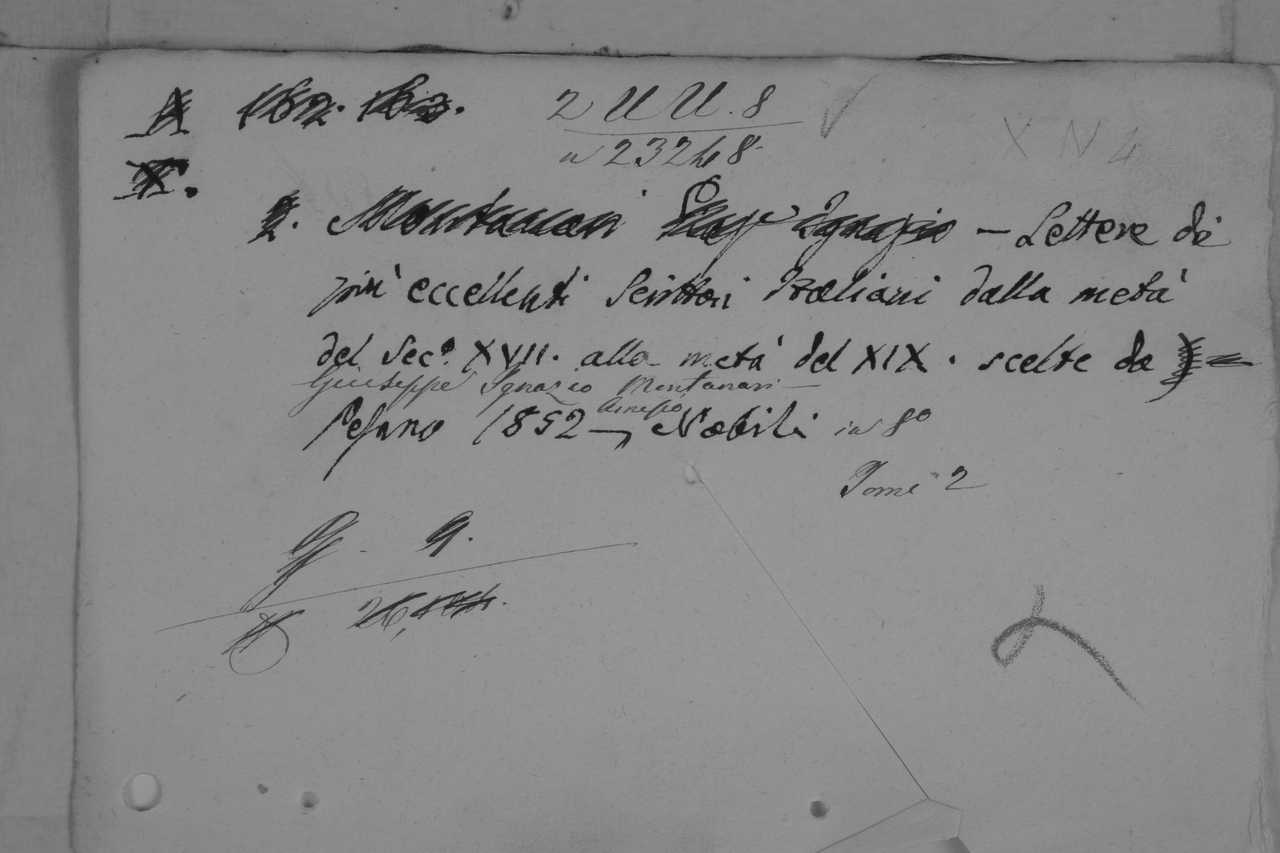 A 162. 163. 2 U U. 8
X N 4
n 23248
X.
2. Montanari Ignazio – Lettere di
più eccellenti Scrittori Italiani dalla metà
del Sec.º XVII. alla metà del XIX. scelte da
Giuseppe Ignazio Montanari –
Pesaro 1852 – Nobili in 8º
Tomi 2
G. 9.